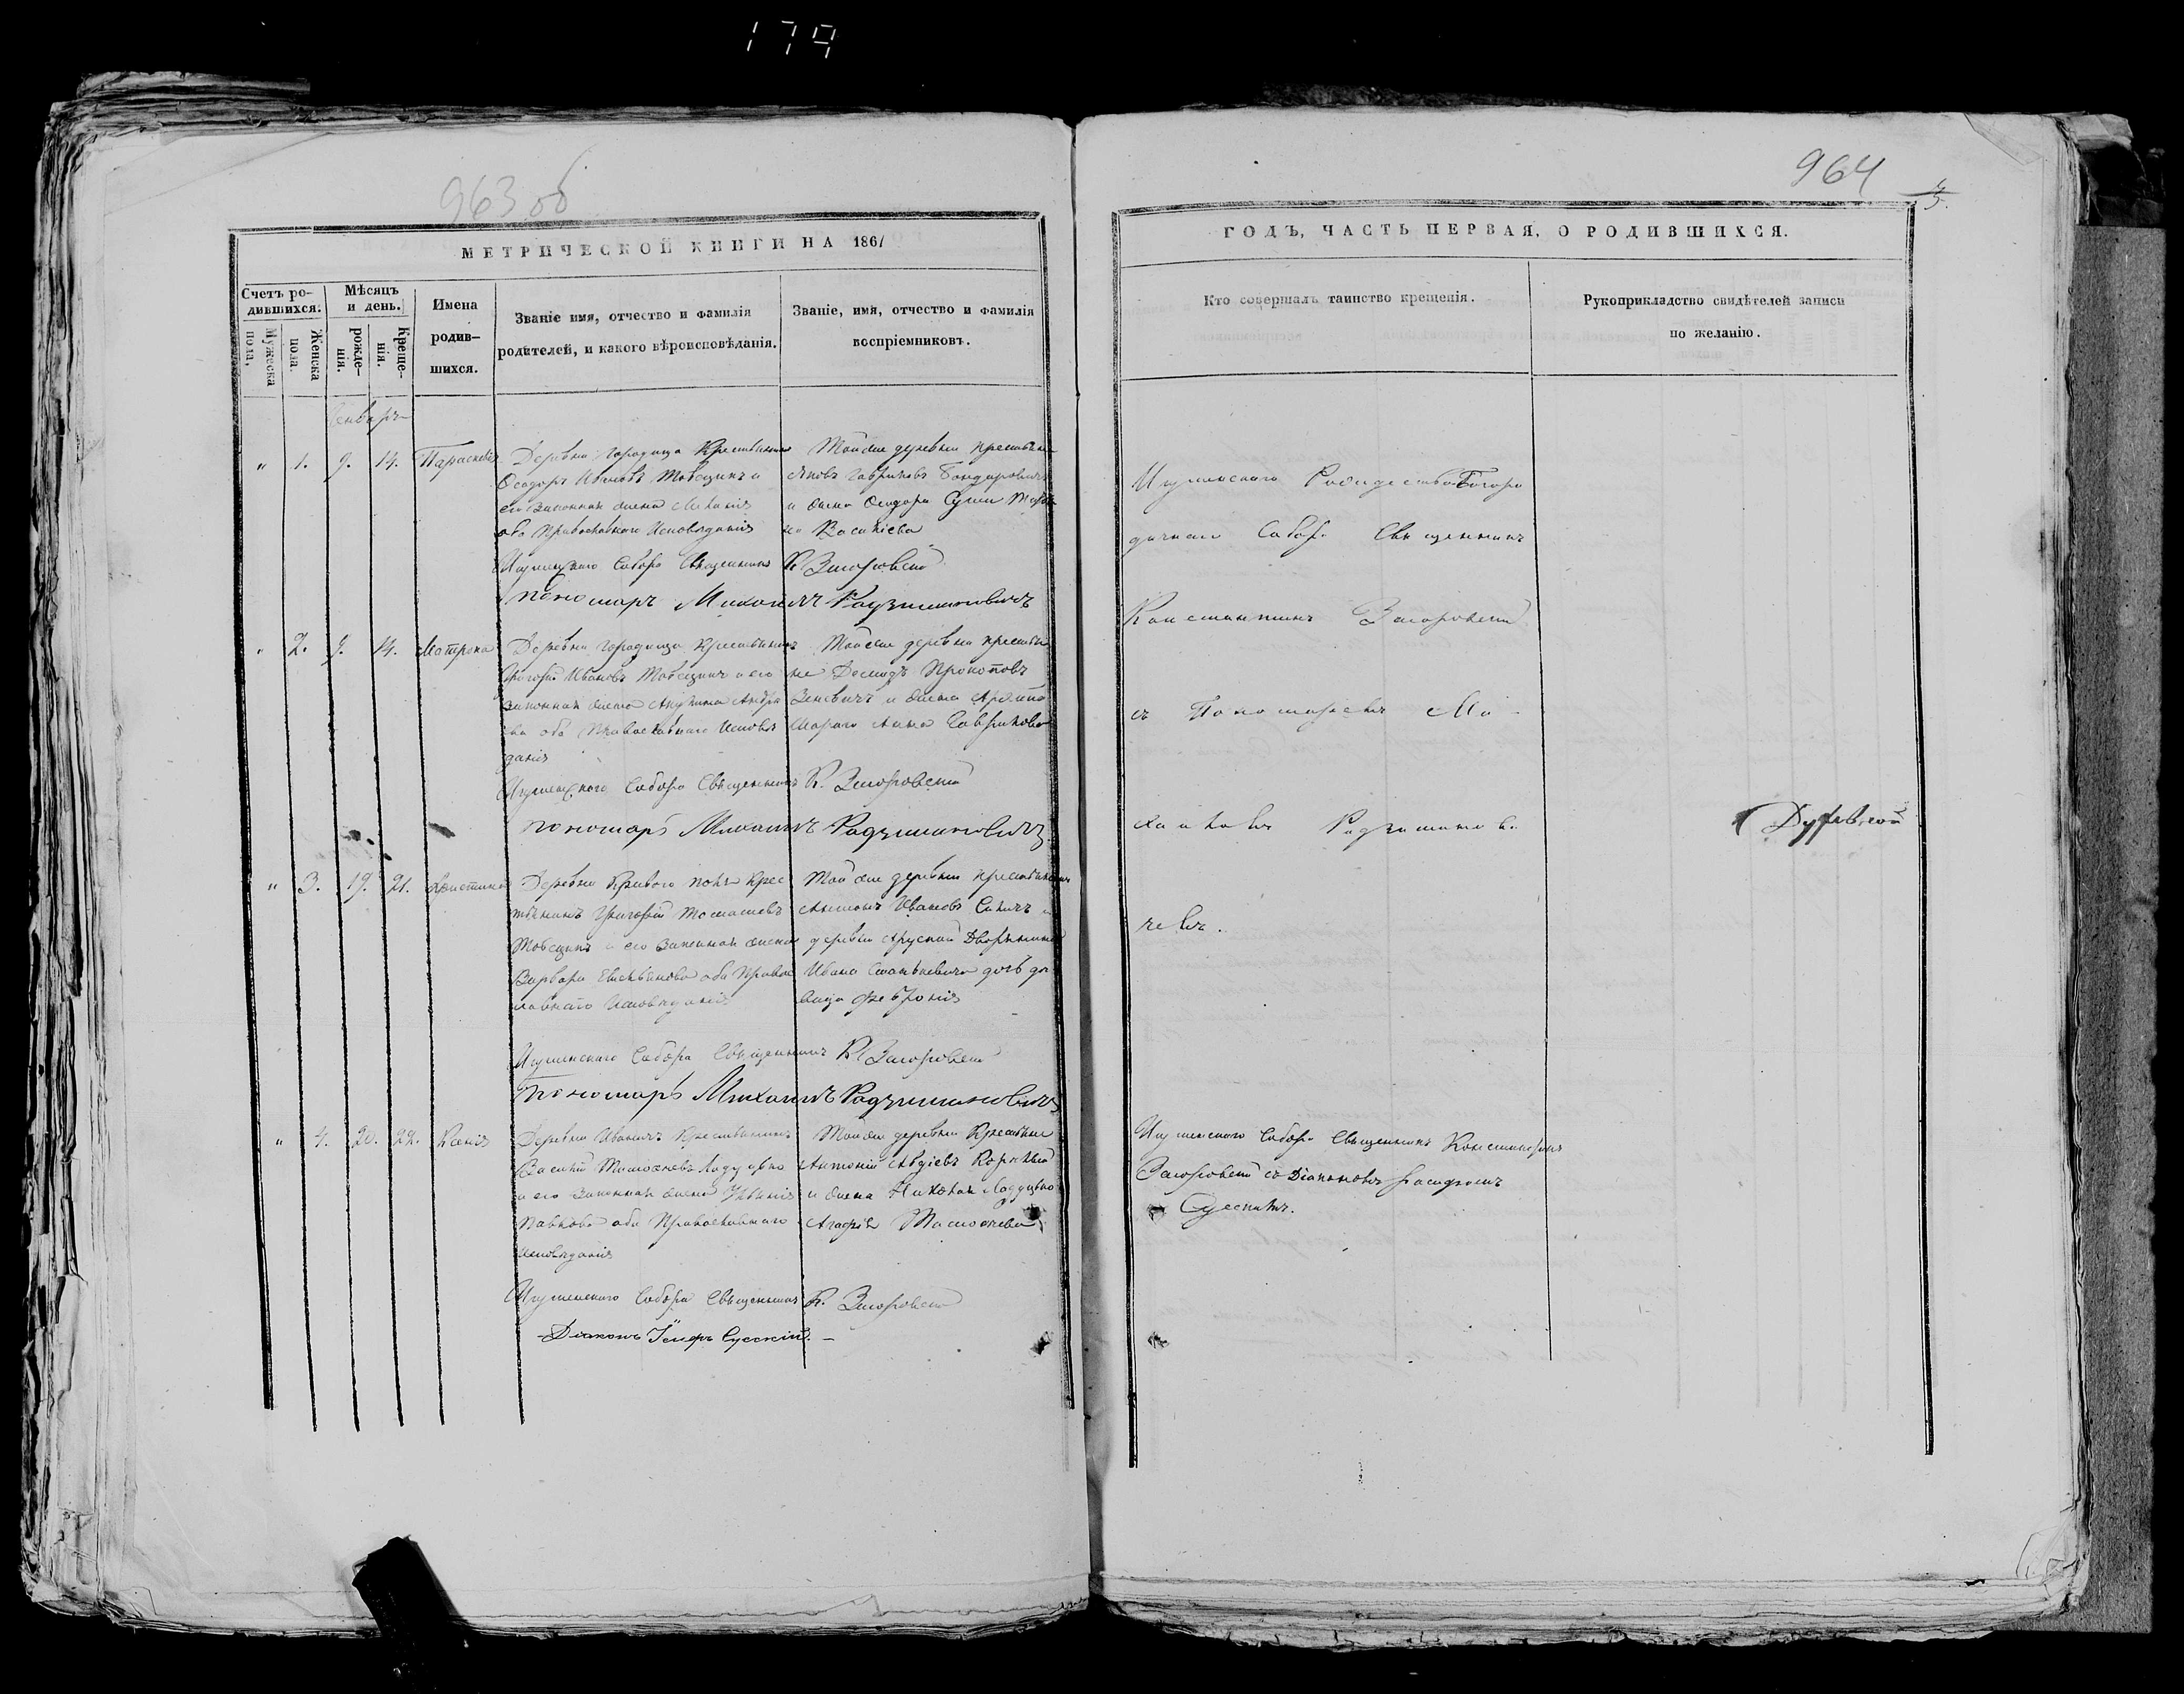 179
963 об
МЕТРИЧЕСКОЙ КНИГИ НА 1861
Счетъ ро-
дившихся.
Мужеска
пола.
Женска
пола.
Мѣсяцъ
и день.
рожде-
нія.
Креще-
нія.
Имена
родив-
шихся.
Званіе имя, отчество и фамилія
родителей, и какого вѣроисповѣданія.
Званіе, имя, отчество и фамилія
воспріемниковъ.
Январь
" 1. 9. 14. Параскевія
Деревни Городища Крестьянинъ
Ѳеодоръ Ивановъ Товсцикъ и
его законная жена
оба Православнаго Исповѣданія
Той же деревни крестьяне
Гавриловъ Бондаровичъ
и жена Ѳеодора
Василіева
Игуменскаго Собора Священникъ К Загоровскій
Пономаръ Михаилъ Радзиминовичъ
" 2. 9. 14. Матрона
Деревни Городища Крестьянинъ
Григорій Ивановъ Товсцикъ и его
законная жена Акулина Андре
ева оба Православнаго Исповѣ
данія
Той же деревни крестья
не Демидъ Прокоповъ
Зеневичъ и жена
Анна Гаврилова
Игуменскаго Собора Священникъ К. Загоровскій
пономаръ Михаилъ Радзиминовичъ
" 3. 19. 21. Христина
Деревни Кривого поля Крес
тьянинъ Григорій Томашевъ
Товсцикъ и его законная жена
Варвара оба Правос
лавнаго Исповѣданія
Той же деревни крестьянинъ
Антонъ Ивановъ и
деревни Дворянина
Ивана Станкевича дочь дѣ
вица Февронія
Игуменскаго Собора Священникъ К Загоровскій
Пономаръ Михаилъ Радзиминовичъ
" 4. 20. 22. Ксенія
Деревни Иваничъ Крестьянинъ
Василій Тимоѳеевъ Ладуцько
и его законная жена
Павлова оба Православнаго
исповѣданія
Той же деревни Крестьяне
Антоній Авдіевъ
и жена Николая Ладуцько
Агафія Тимоѳеева
Игуменскаго Собора Священникъ К. Загоровскій
Діаконъ Іосифъ Суескій. –
964
ГОДЪ, ЧАСТЬ ПЕРВАЯ, О РОДИВШИХСЯ.
Кто совершалъ таинство крещенія.
Рукоприкладство свидѣтелей записи
по желанію.
Игуменскаго Рождество Богоро
дичнаго Собора Священникъ
Константинъ Загоровскій
съ Пономаремъ Ми-
хаиломъ Радзиминов.
чемъ.
Игуменскаго Собора Священникъ Константинъ
Загоровскій съ Діакономъ Іосифомъ
Суескимъ.